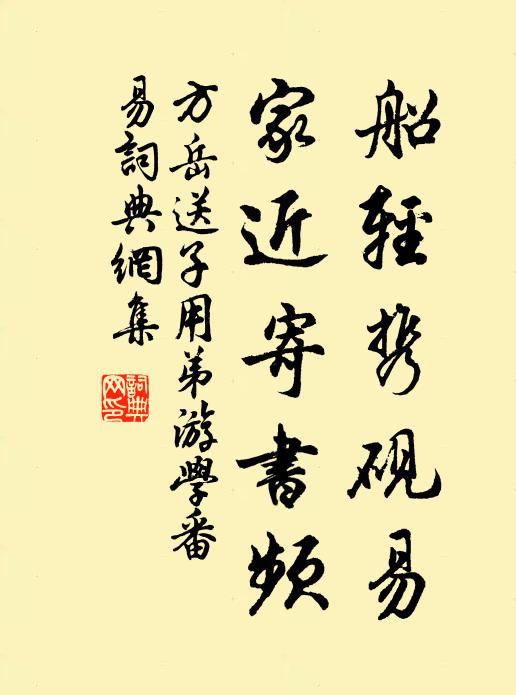 船輕携硯易
家近寄書頻
方岳送子用弟游學番
易詞典網集
詞典網印